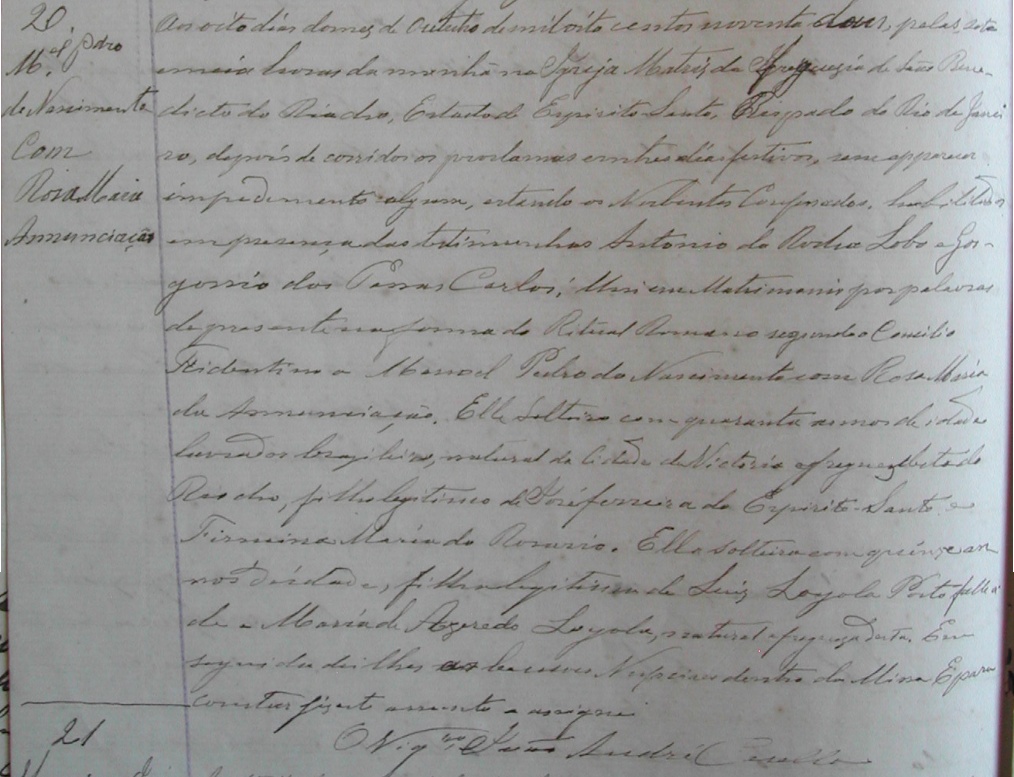 20
M.el Pdro
do Nascimento
Com
Rosa Maria
Annunciação
Aos oito dias do mez de Outubro de mil oito centos noventa dous, pelas sete
e meia horas da manhã na Igreja Matriz da Freguezia de São Bene-
dicto do Riacho, Estado do Espirito Santo, Bispado do Rio de Janei
ro, depois de corridos os proclamas em tres dias festivos, sem apparecer
impedimento algum, estando os Nubentes Confessados, habilitados
em presença das testimunhas Antonio da Rocha Lobo e Gor-
gonio dos Passos Carlos, Uni em Matrimonio por palavras
de presente na forma do Ritual Romano segundo o Concilio
Tridentino a Manoel Pedro do Nascimento com Rosa Maria
da Annunciação. Elle Solteiro com quaranta annos de idade
lavrador brazileiro, natural da Cidade da Victoria e freguez desta do
Riacho, filho legitimo de José Ferreira do Espirito-Santo e
Firmina Maria do Rosario. Ella solteira com quinze an
nos de idade, filha legitima de Luiz Loyola Porto falleci
do e Maria de Azeredo Loyola, natural e fregueza desta. Em
seguida dei lhes as bençoes Nupciaes dentro da Missa E para
constar fiz este assento e assignei
O Vigr.o João André Casella
21